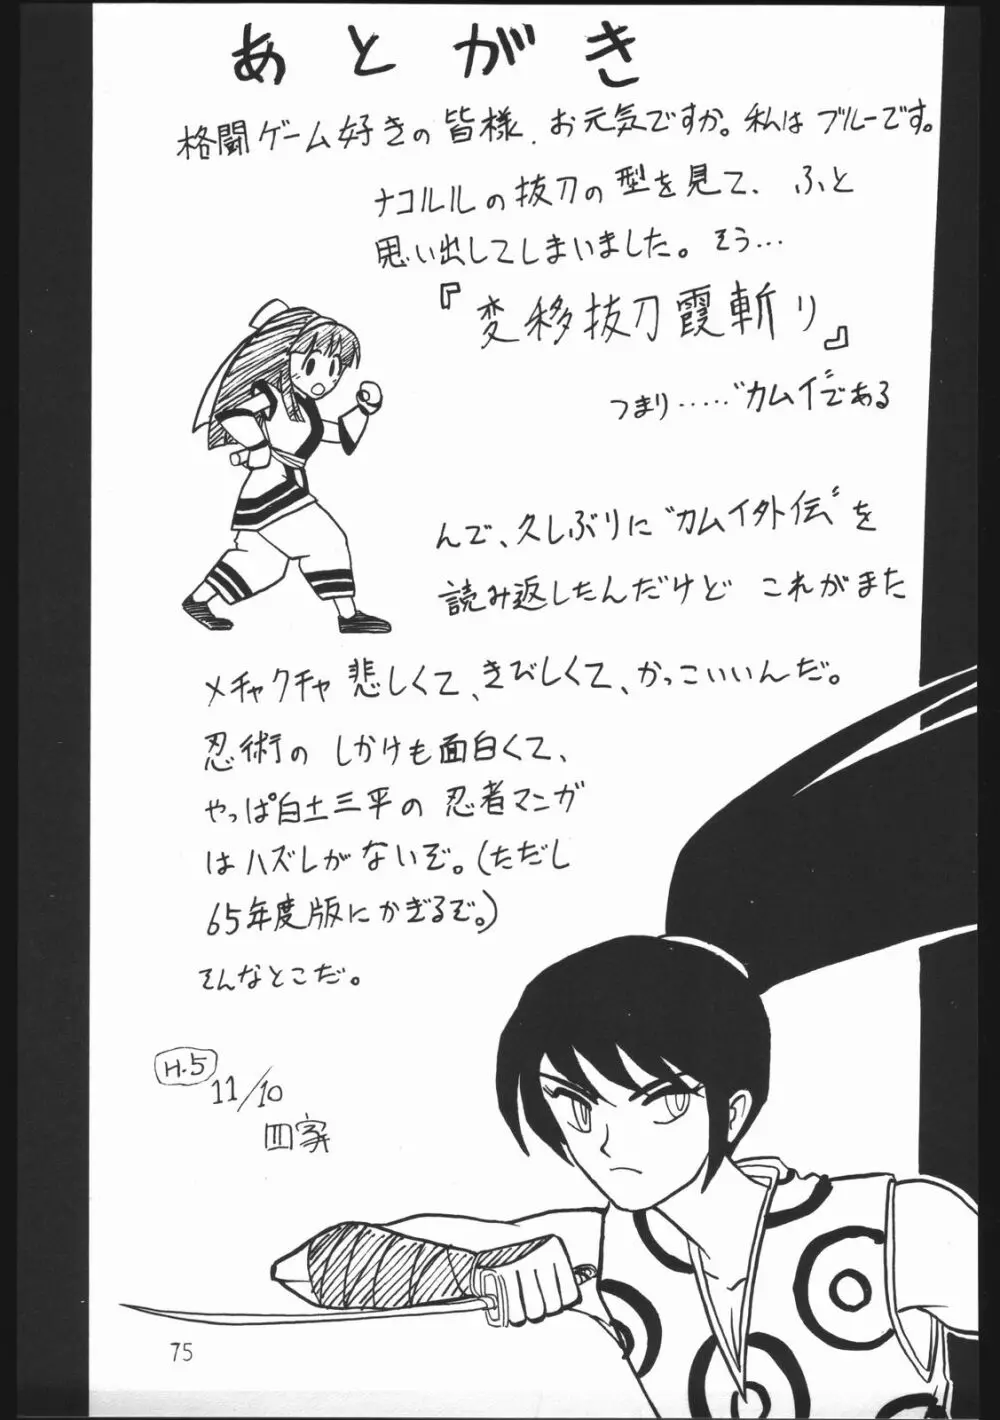 あとがき
格闘ゲーム好きの皆様、お元気ですか。私はブルーです。
ナコルルの抜刀の型を見て、ふと
思い出してしまいました。そう…
『変移抜刀霞斬り』
つまり……“カムイ”である
んで、久しぶりに“カムイ外伝”を
読み返したんだけど これがまた
メチャクチャ悲しくて、きびしくて、かっこいいんだ。
忍術の しかけも面白くて、
やっぱ白土三平の忍者マンガ
はハズレがないぞ。(ただし
65年度版にかぎるぞ。)
そんなとこだ。
H.5
11/10
四家
75